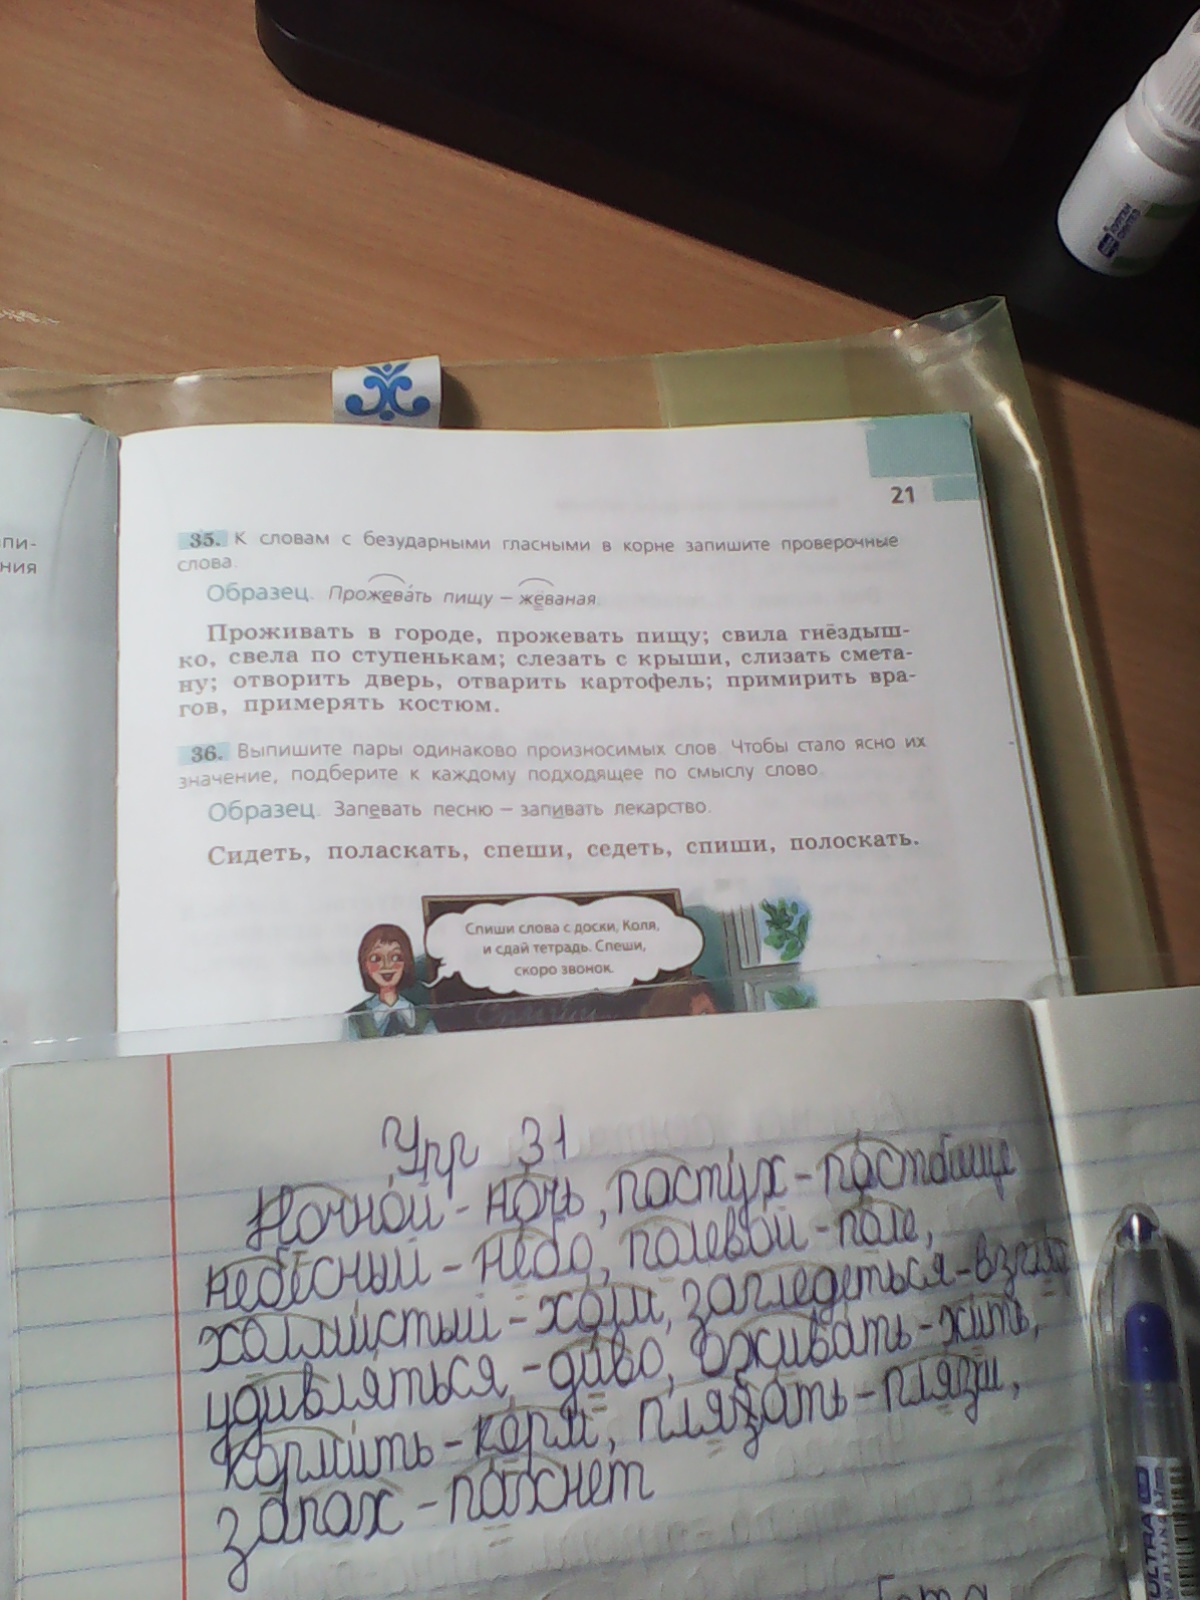 21
пи-
ния
35. К словам с безударными гласными в корне запишите проверочные
слова.
Образец. Прожева́ть пищу – жёваная.
Проживать в городе, прожевать пищу; свила гнёздыш-
ко, свела по ступенькам; слезать с крыши, слизать смета-
ну; отворить дверь, отварить картофель; примирить вра-
гов, примерять костюм.
36. Выпишите пары одинаково произносимых слов. Чтобы стало ясно их
значение, подберите к каждому подходящее по смыслу слово.
Образец. Запевать песню – запивать лекарство.
Сидеть, поласкать, спеши, седеть, спиши, полоскать.
Спиши слова с доски, Коля,
и сдай тетрадь. Спеши,
скоро звонок.
Упр 31
Ночно́й - ночь, пасту́х - пастбище
небесный - небо, полевой - поле,
холмистый - холм, заглядеться - взгляд
удивляться, - диво, оживать - жить,
кормить - корм, плязать - плязы,
запах - пахнет
ULTRA